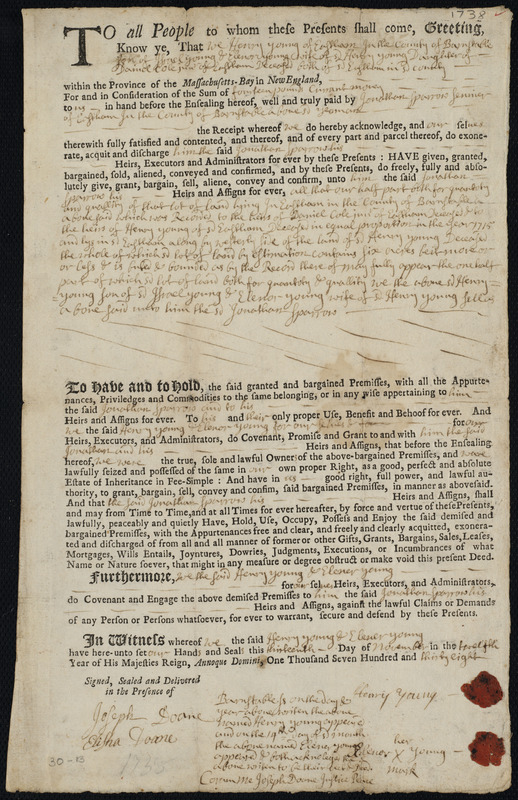 1738
TO all People to whom these Presents shall come, Greeting,
Know ye, That we Henry Young of Eastham In the County of Barnstable
son of Isrel Young & Elener Young wife of sd Henry Young Daughter of
Daniel Cole junr of Eastham Deceast both of sd Eastham in sd County
within the Province of the Massachusetts-Bay in New England,
For and in Consideration of the Sum of fourteen pound Currant money
to us in hand before the Ensealing hereof, well and truly paid by Jonathan Sparrow
of Eastham In the County of Barnstable above sd
the Receipt whereof we do hereby acknowledge, and our selves
therewith fully satisfied and contented, and thereof, and of every part and parcel thereof, do exone-
rate, acquit and discharge him the said Jonathan Sparrow his
Heirs, Executors and Administrators for ever by these Presents: HAVE given, granted,
bargained, sold, aliened, conveyed and confirmed, and by these Presents, do freely, fully and abso-
lutely give, grant, bargain, sell, aliene, convey and confirm, unto him the said Jonathan
Sparrow his Heirs and Assigns for ever, all that our half part both for quantity
and quality of that lot of land lying in Eastham in the County of Barnstable
above said which was Recorded to the heirs of Daniel Cole junr of Eastham Deceast & to
the heirs of Henry Young of sd Eastham Deceast in equal proportion in the year 1715
and lys in sd Eastham along by westerly side of the land of sd Henry Young Deceast
the whole of which sd lot of land by Estimation contains six acres be it more or
or less & is butted & bounded as by the Record thereof may fully appear the one half
part of which sd lot of land both for quantity & quality we the above sd Henry
Young son of sd Isrel Young & Elener Young wife of sd Henry Young sells
above said unto him the sd Jonathan Sparrow
To Have and to Hold, the said granted and bargained Premisses, with all the Appurte-
nances, Priviledges and Commodities to the same belonging, or in any wise appertaining to him
the said Jonathan Sparrow and to his
Heirs and Assigns for ever. To his and their only proper Use, Benefit and Behoof for ever. And
we the said Henry Young & Elener Young for our selves & for our
Heirs, Executors, and Administrators, do Covenant, Promise and Grant to and with him the said
Jonathan and his Heirs and Assigns, that before the Ensealing
hereof, we were the true, sole and lawful Owners of the above-bargained Premises, and were
lawfully seized and possessed of the same in our own proper Right, as a good, perfect and absolute
Estate of Inheritance in Fee-Simple: And have in us good right, full power, and lawful au-
thority, to grant, bargain, sell, convey and confirm, said bargained Premisses, in manner as abovesaid.
And that the said Jonathan Sparrow his Heirs and Assigns, shall
and may from Time to Time, and at all Times for ever hereafter, by force and vertue of these Presents,
lawfully, peaceably and quietly Have, Hold, Use, Occupy, Possess and Enjoy the said demised and
bargained Premisses, with the Appurtenances free and clear, and freely and clearly acquitted, exonera-
ted and discharged of from all and all manner of former or other Gifts, Grants, Bargains, Sales, Leases,
Mortgages, Wills Entails, Joyntures, Dowries, Judgments, Executions, or Incumbrances of what
Name or Nature soever, that might in any measure or degree obstruct or make void this present Deed.
Furthermore, we the said Henry Young & Elener Young
for our selves, Heirs, Executors, and Administrators,
do Covenant and Engage the above demised Premisses to him the said Jonathan Sparrow his
Heirs and Assigns, against the lawful Claims or Demands
of any Person or Persons whatsoever, for ever to warrant, secure and defend by these Presents.
In Witness whereof we the said Henry Young & Elener Young
have here-unto set our Hands and Seals this thirteenth Day of November in the twelfth
Year of His Majesties Reign, Annoque Domini, One Thousand Seven Hundred and thirty eight
Signed, Sealed and Delivered
in the Presence of
Joseph Doane
Elisha Doane
Henry Young
Barnstable ss on the day &
year above written the above
named Henry Young appeared
and on the 14th Day of sd month
the above named Elener Young
appeared & both acknowledged the
above written to be their
Coram me Joseph Doane Justice Peace
her
Elener X Young
mark
30-13
1738